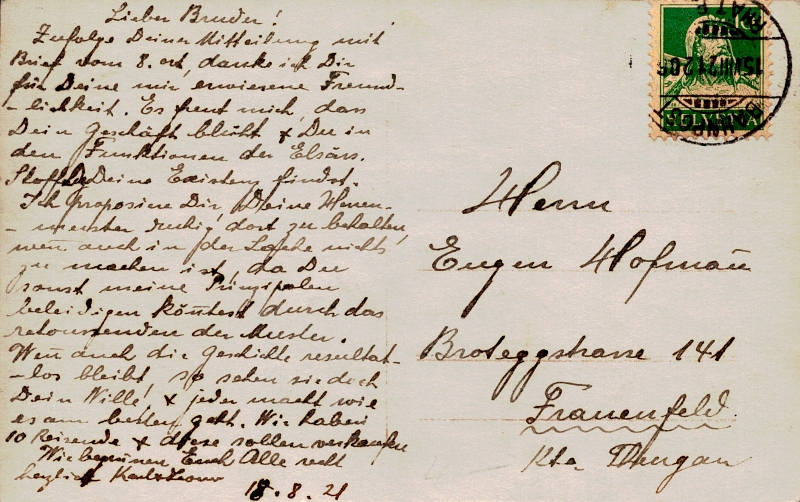 Lieber Bruder!
Zufolge Deiner Mitteilung mit
Brief vom 8. ort, danke ich Dir
für Deine mir erwiesene Freund-
-lichkeit. Es freut mich, dass
Dein Geschäft blüht & Du in
den Funktionen der Elsäss.
Deine Existenz findst.
Ich proponiere Dir, Deine
-muster ruhig dort zu behalten,
wen̄ auch in der Sache nichts
zu machen ist, da Du
sonst meine Prinzipalen
beleidigen kön̄test durch das
retournenden der Muster.
Wen̄ auch die Geschichte resultat-
-los bleibt, so sehen sie doch
Dein Wille! & jeder macht wie
es am besten geht. Wir haben
10 Reisende & diese sollen verkaufen
Wir Euch Alle recht
herzlich Karl &
18.8.21
Herrn
Eugen Hofman̄
Broteggstrasse 141
Frauenfeld.
Kt. Thurgau
HELVETIA